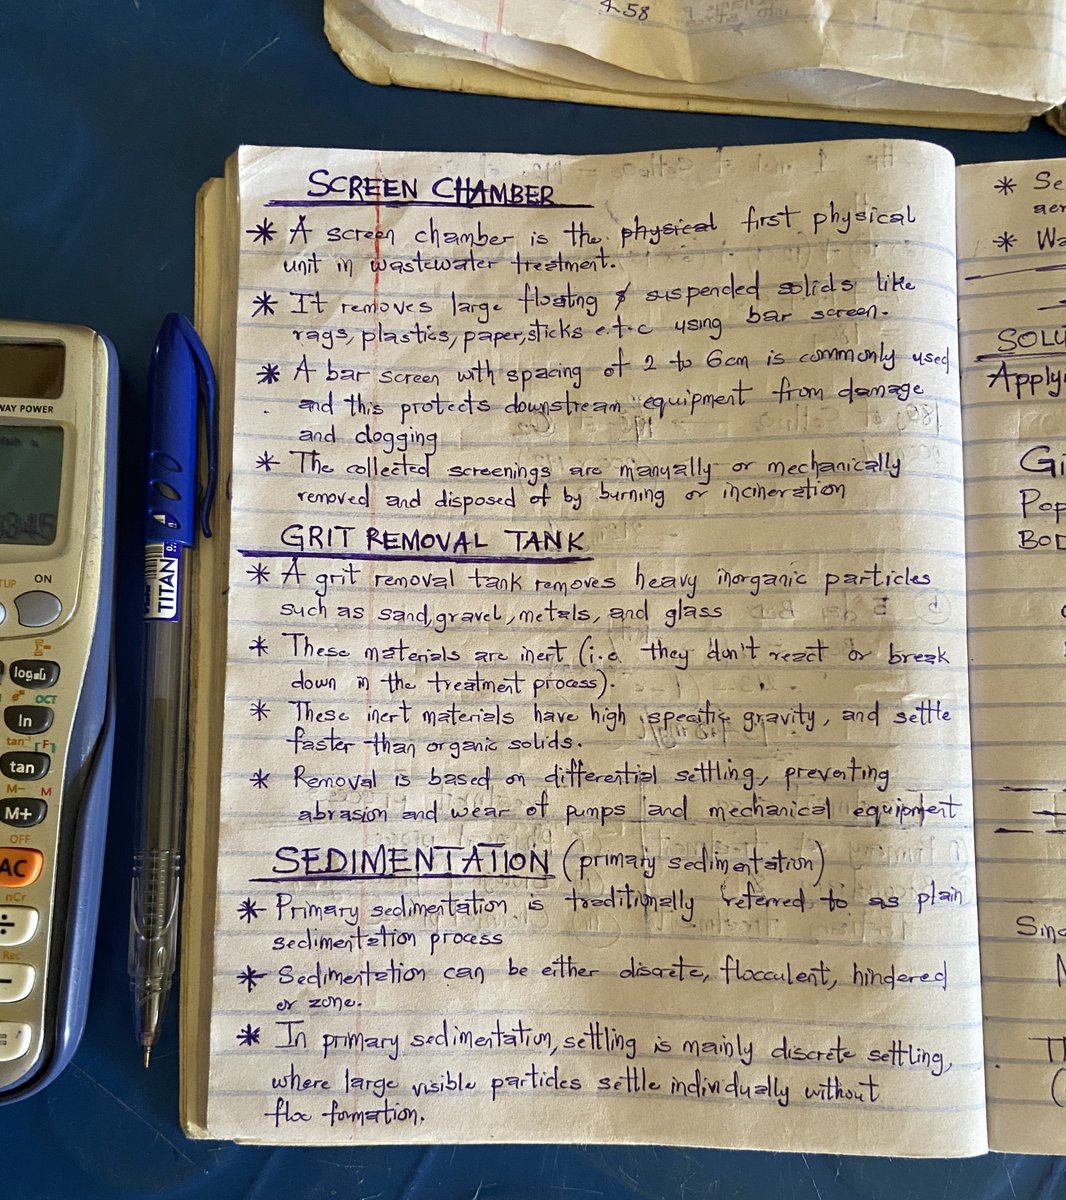 4.58
SCREEN CHAMBER
* A screen chamber is the physical first physical
unit in wastewater treatment.
* It removes large floating & suspended solids like
rags, plastics, paper, sticks e.t.c using bar screen.
* A bar screen with spacing of 2 to 6cm is commonly used
and this protects downstream equipment from damage
and clogging
* The collected screenings are manually or mechanically
removed and disposed of by burning or incineration
GRIT REMOVAL TANK
* A grit removal tank removes heavy inorganic particles
such as sand, gravel, metals, and glass
* These materials are inert (i.e they don't react or break
down in the treatment process).
* These inert materials have high specific gravity, and settle
faster than organic solids.
* Removal is based on differential settling, preventing
abrasion and wear of pumps and mechanical equipment
SEDIMENTATION (primary sedimentation)
* Primary sedimentation is traditionally referred to as plain
sedimentation process
* Sedimentation can be either discrete, flocculent, hindered
or zone.
* In primary sedimentation, settling is mainly discrete settling,
where large visible particles settle individually without
floc formation.
* Se
aer
* Wa
SOLU
Apply
Gi
Pop
BOD
Sinc
Th
WAY POWER
ON
OCT
ln
tan
M- M
M+
OFF
AC
nCr
÷
Rec
−
TITAN